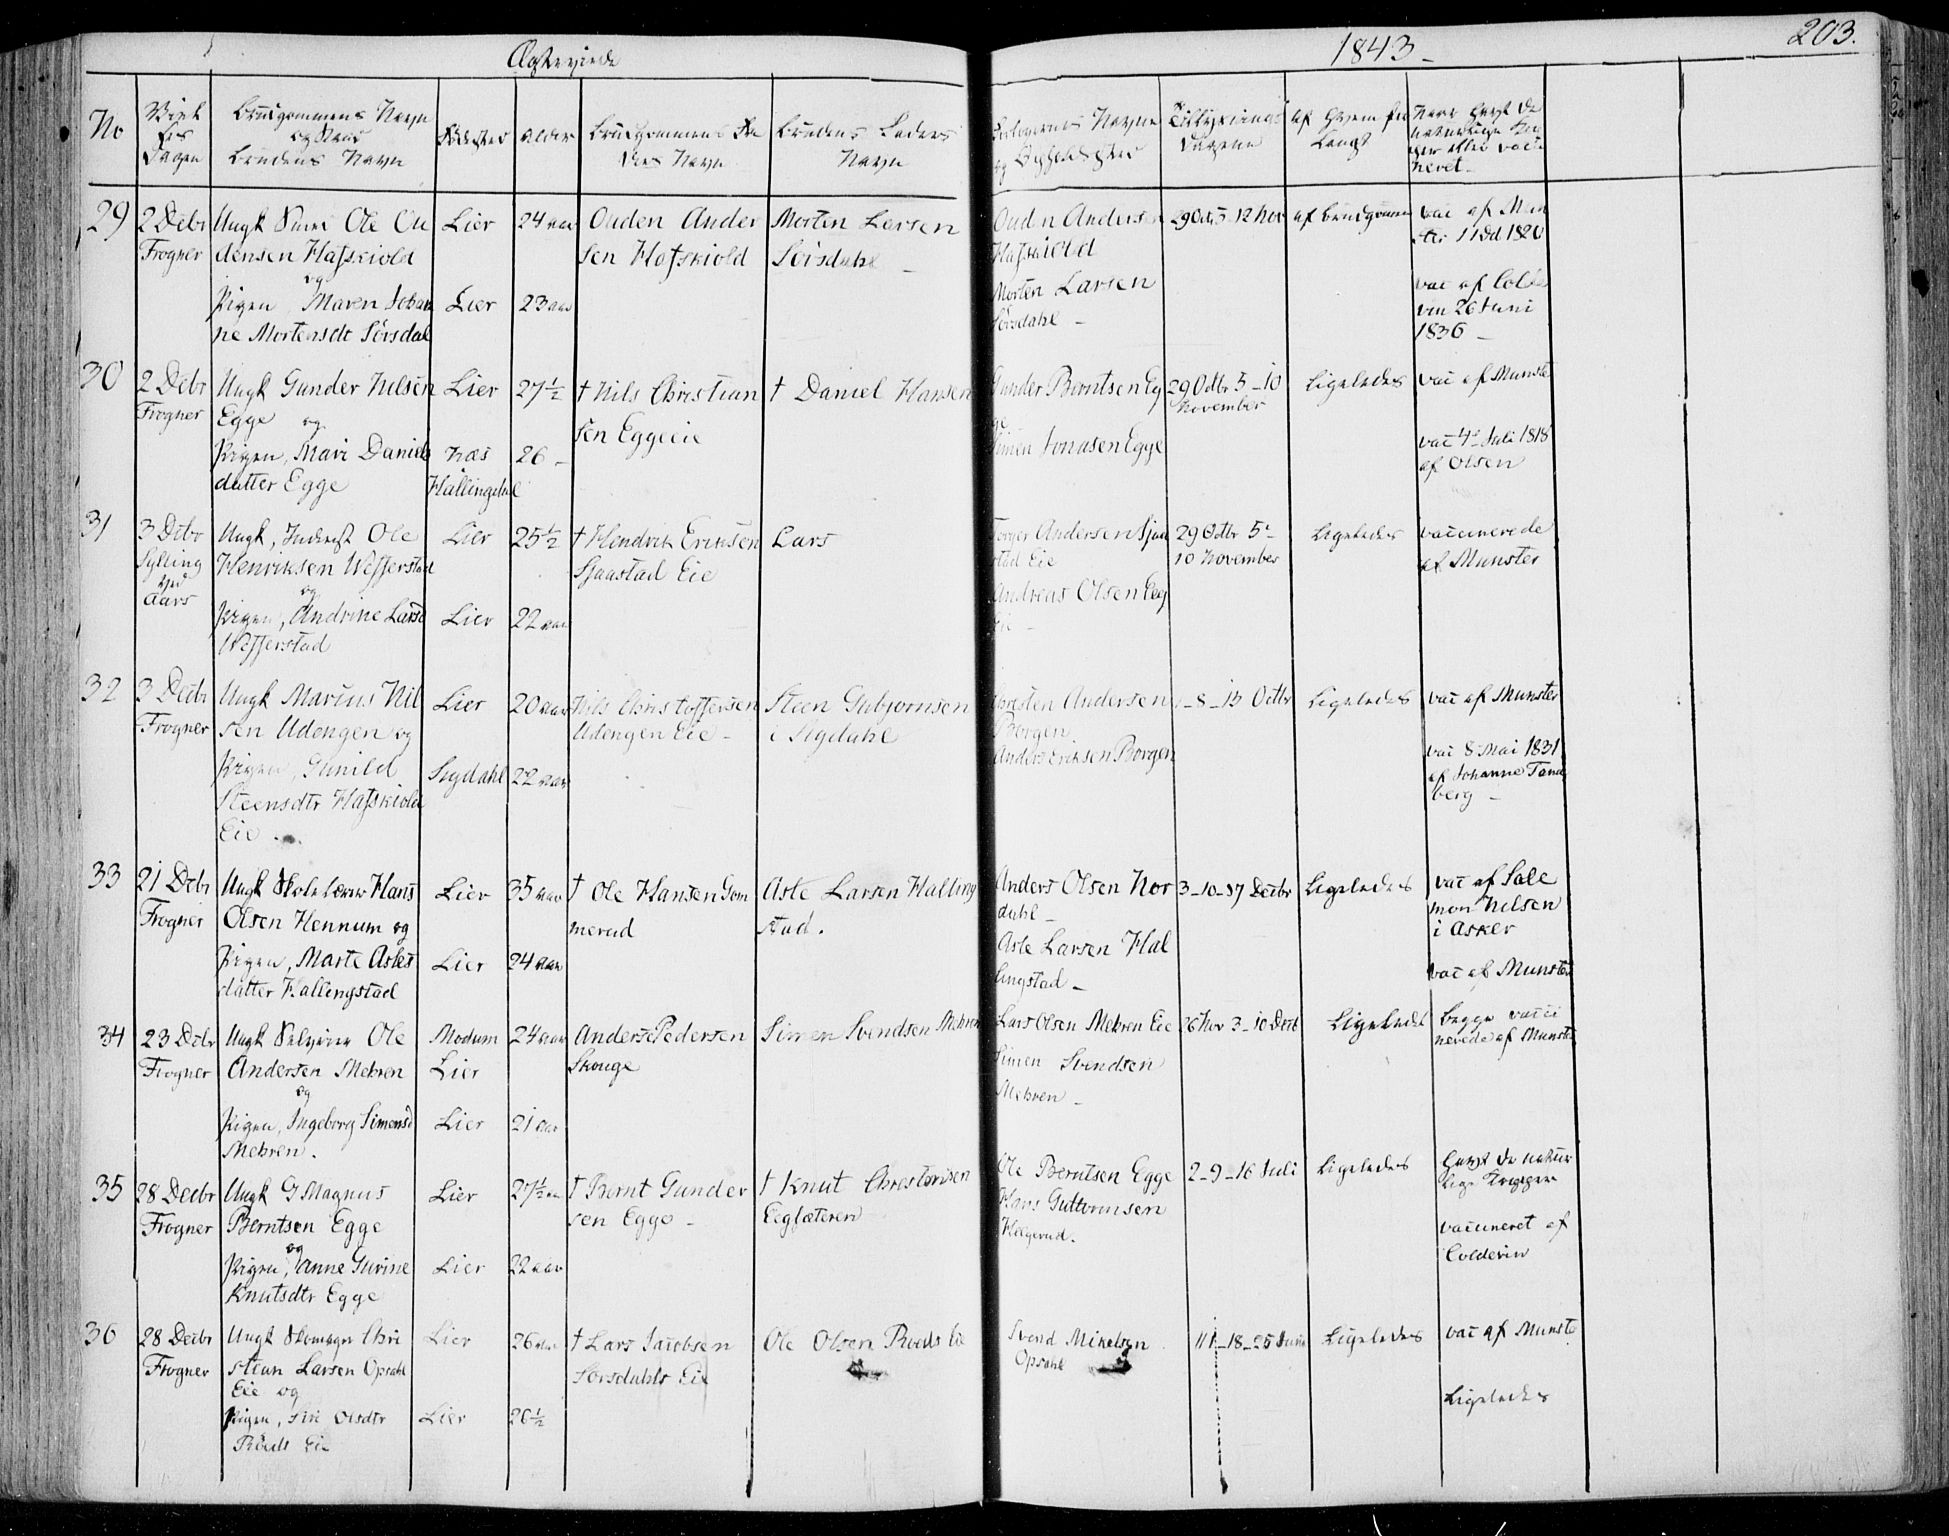 Ægteviede
1843 -
203.
No
Viel
ses
Dagen
Brudgommens Navn
og Stand
Brudens Navn
Fødested
Alder
Brudgommens Fa
ders Navn
Brudens Faders
Navn
Forlovernes Navne
og Opholdssted
Tillysnings
Dagene
af hvem for
langt
Naar havt de
naturlige Kop
per eller vacci
neret -
29
2 Debr
Frogner
Ungk Ole Ou
densen Hafskiold
og
Pigen Maren Johan
ne Mortensdt Sørsdal
Lier
Lier
24 aar
23 aar
Ouden Ander
sen Hafskiold
Morten Larsen
Sørsdahl -
Ouden Andersen
Hafskiold
Morten Larsen
Sørsdahl -
29 Octb 5 - 12 Nov
af Brudgommen
vac af Mun
ster 11 Od 1820
vac af Colde
vin 26 Juni
1836 -
30
2 Debr
Frogner
Ungk Gunder Nilsen
Egge og
Pigen, Mari Daniels
datter Egge
Lier
Næs
Hallingdal
27½
26 -
† Nils Christian
sen Eggeeie
† Daniel Hansen
Gunder Berntsen Eg
ge
Simen Jonasen Egge
29 Octbr 5 - 10
November
Ligeledes
vac af Munster
vac 4de Juli 1818
af Olsen
31
3 Debr
Sylling
ved
Aars
Ungk, Inderst Ole
Henriksen Wefferstad
og
Pigen, Andrine Larsd
Wefferstad
Lier
Lier
25½
22 aar
† Hendrik Eriksen
Sjaastad Eie
Lars
Torger Andersen Sjaa
stad Eie
Andreas Olsen Eeg
eie -
29 Octbr 5 -
10 November
Ligeledes
vaccinerede
af Munster
32
3 Decbr
Frogner
Ungk Marius Nil
sen Udengen og
Pigen, Gunild
Steensdtr Hafskiold
Eie -
Lier
Sigdahl
20 aar
22 aar
Nils Christoffersen
Udengen Eie -
Steen Gubjørnsen
i Sigdahl
Christen Andersen
Borgen
Anders Eriksen Borgen
1 - 8 - 15 Octbr
Ligeledes
vac af Munster
vac 8 Mai 1831
af Johanne Tand
berg -
33
21 Debr
Frogner
Ungk Skolelærer Hans
Olsen Hennum og
Pigen, Marte Asles
datter Hallingstad
Lier
Lier
35 aar
24 aar
† Ole Hansen Gom
merud
Asle Larsen Halling
stad.
Anders Olsen Nor
dahl -
Asle Larsen Hal
lingstad -
3 - 10 - 17 Decbr
Ligeledes
vac af Salo
mon Nilsen
i Asker
vac af Munster
34
23 Debr
Frogner
Ungk Selveier Ole
Andersen Mehren
og
Pigen, Ingeborg Simensd
Mehren.
Modum
Lier
Lier
24 aar
21 aar
Anders Pedersen
Skouge
Simen Svendsen Mehren
Lars Olsen Mehren Eie
Simen Svendsen
Mehren -
26 Nov 3 - 10 Decb
Ligeledes
begge vacci
nerede af Munster
35
28 Decbr
Frogner
Ungk G Magnus
Berntsen Egge
og
Pigen, Anne Gurine
Knutsdtr Egge
Lier
Lier
27½ aar
22 aar
† Bernt Gunder
sen Egge -
† Knut Christensen
Eegsæteren
Ole Berntsen Egge
Hans Guttormsen
Helgerud.
2 - 9 - 16 Juli
Ligeledes
havt de natur
lige Kopper
vaccineret af
Coldevin
36
28 Decbr
Frogner
Ungk Skomager Chri
stian Larsen Opsahl
Eie og
Pigen, Siri Olsdtr
Röeds Eie
Lier
Lier
26 aar
26½
† Lars Jacobsen
Sørsdahls Eie
Ole Olsen Röeds Eie
Svend Mikelsen
Opsahl
11 - 18 - 25 Juni
Ligeledes
vac af Munster
Ligeledes